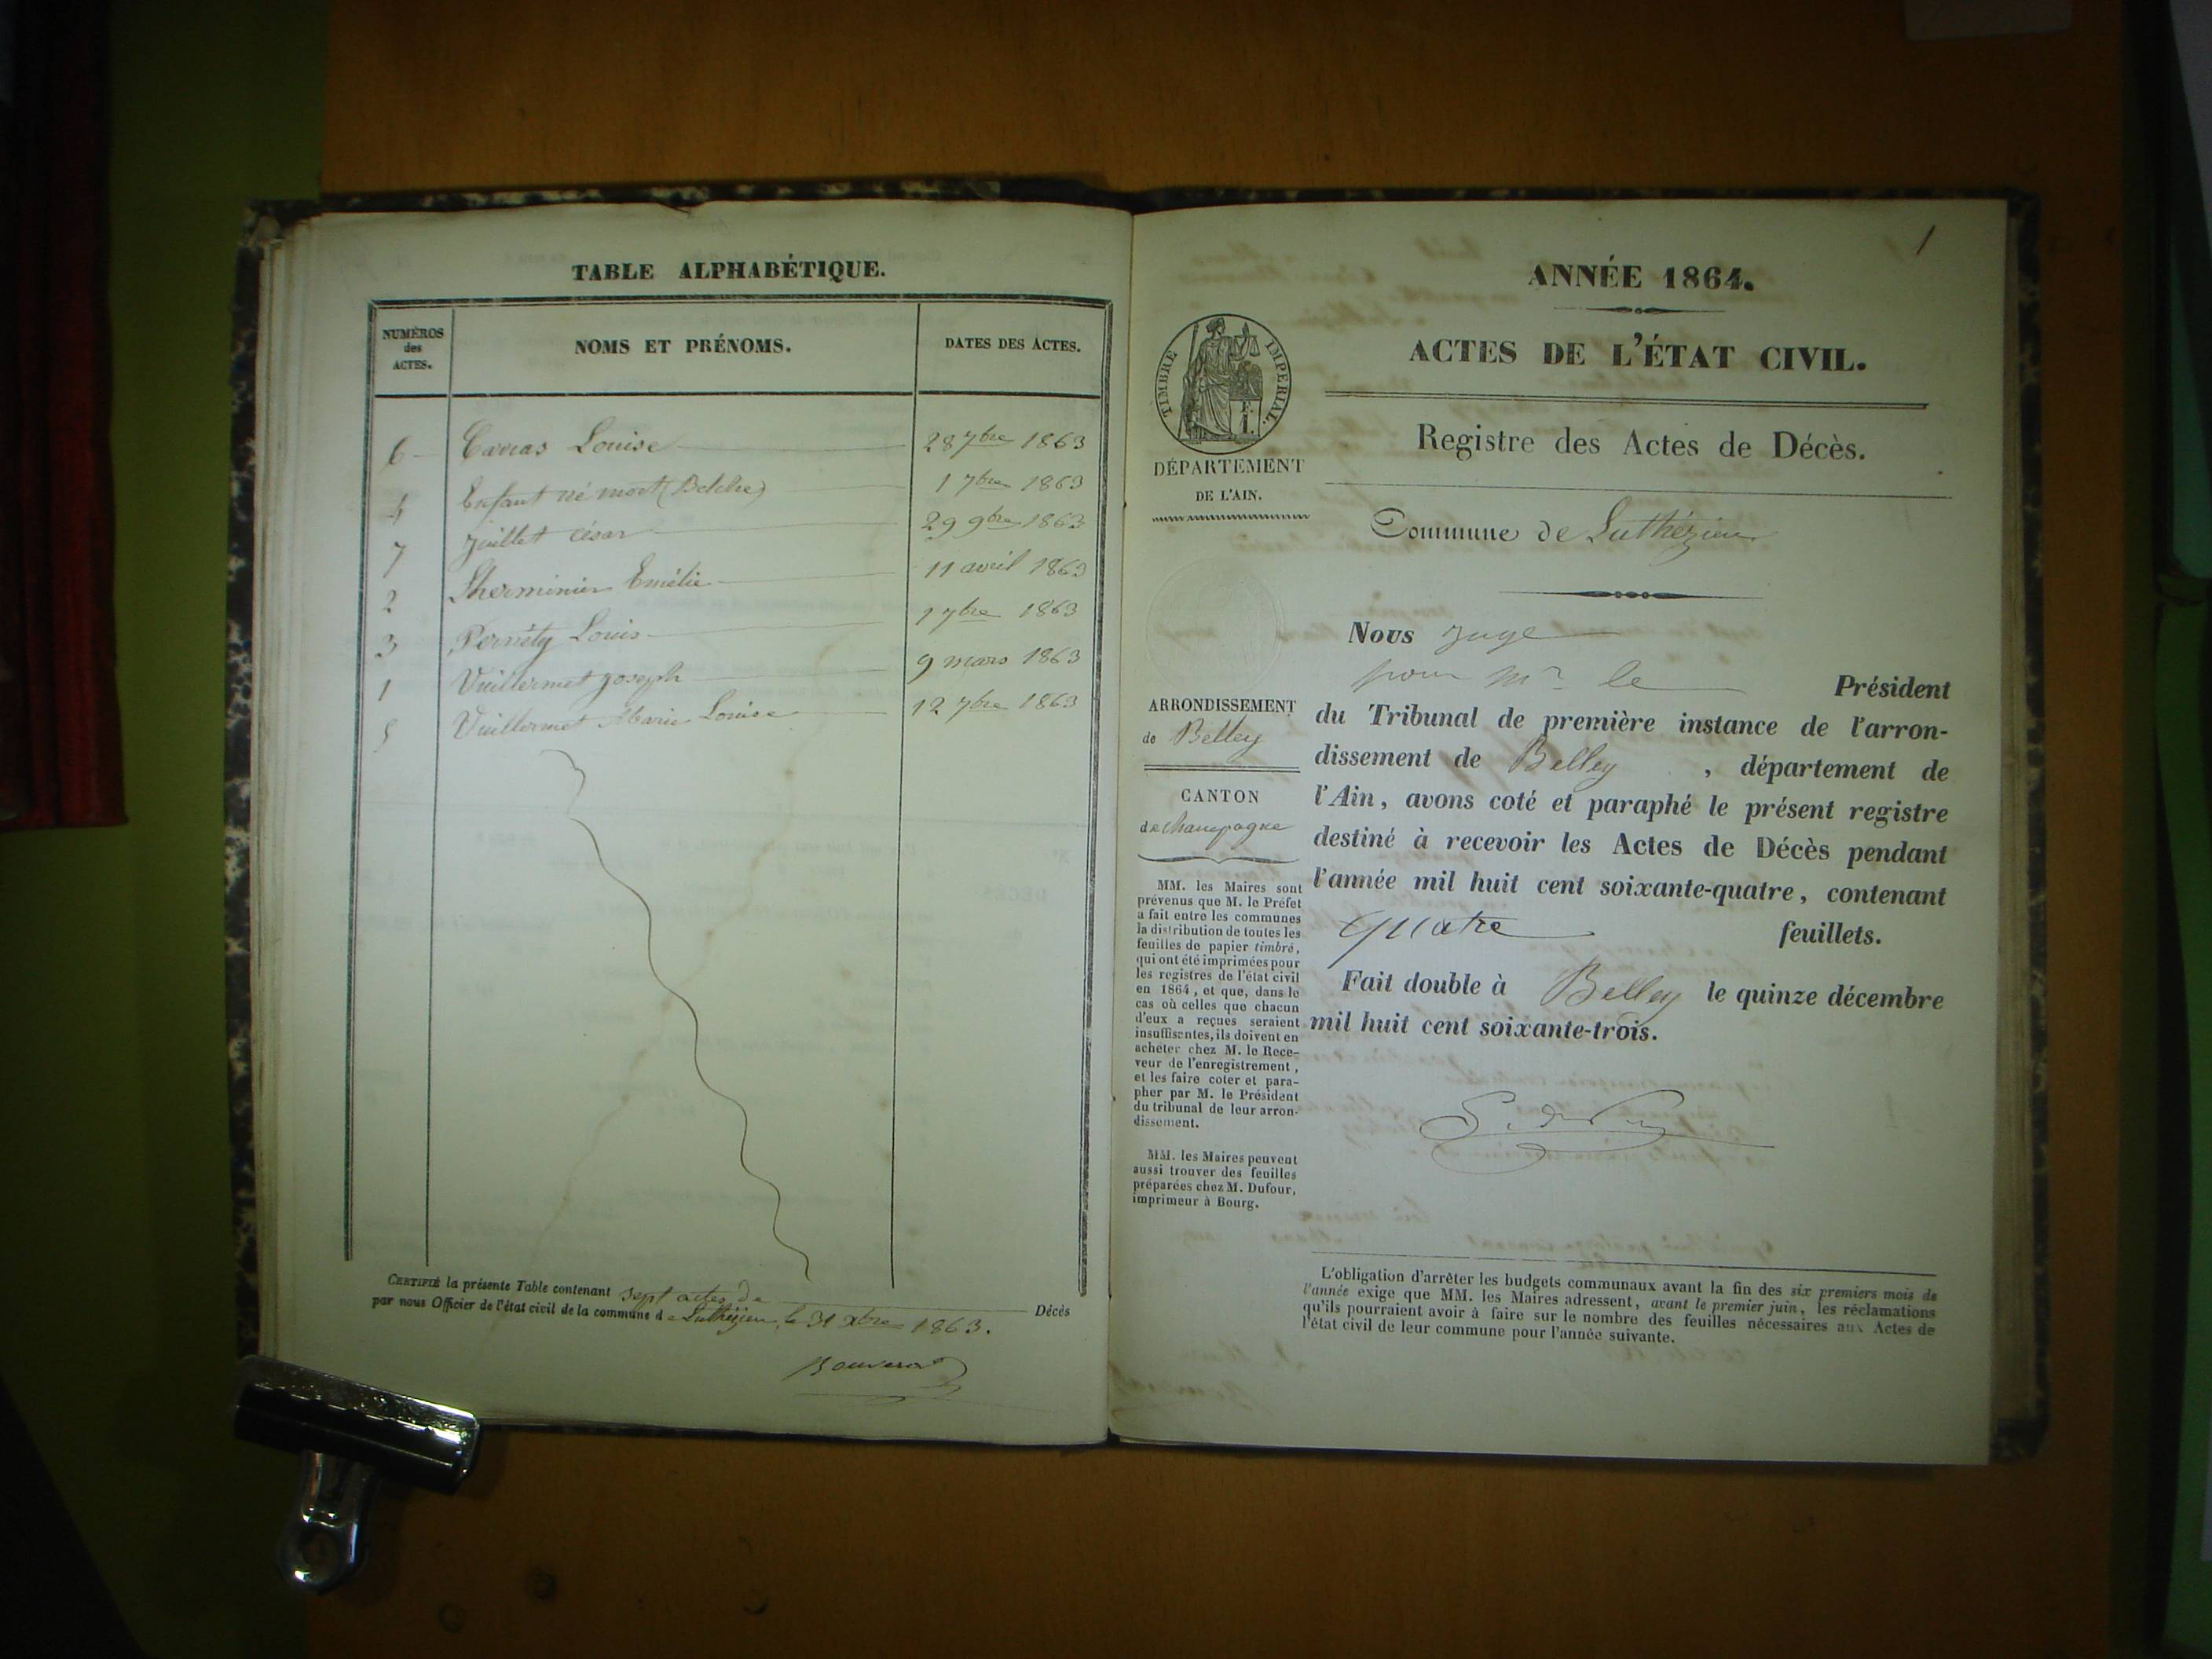 TABLE ALPHABÉTIQUE.
NUMÉROS
des
ACTES.
NOMS ET PRÉNOMS.
DATES DES ACTES.
6 Carras Louise 28 7bre 1863
4 Enfant né mort (Belche) 1 7bre 1863
7 Juillet César 29 9bre 1863
2 Lherminier Emélie 11 avril 1863
3 Pernéty Louis 1 7bre 1863
1 Vuillermet Joseph 9 mars 1863
5 Vuillermet Marie Louise 12 7bre 1863
CERTIFIÉ la présente Table contenant sept actes de Décès
par nous Officier de l'état civil de la commune de Luthézieu, le 31 xbre 1863.
1
ANNÉE 1864.
ACTES DE L'ÉTAT CIVIL.
Registre des Actes de Décès.
Commune de Luthézieu
TIMBRE IMPÉRIAL.
DÉPARTEMENT
DE L'AIN.
ARRONDISSEMENT
de Belley
CANTON
de Champagne
MM. les Maires sont
prévenus que M. le Préfet
a fait entre les communes
la distribution de toutes les
feuilles de papier timbré,
qui ont été imprimées pour
les registres de l'état civil
en 1864, et que, dans le
cas où celles que chacun
d'eux a reçues seraient
insuffisantes, ils doivent en
acheter chez M. le Rece-
veur de l'enregistrement,
et les faire coter et para-
pher par M. le Président
du tribunal de leur arron-
dissement.
MM. les Maires peuvent
aussi trouver des feuilles
préparées chez M. Dufour,
imprimeur à Bourg.
Nous juge
pour Mr le Président
du Tribunal de première instance de l'arron-
dissement de Belley, département de
l'Ain, avons coté et paraphé le présent registre
destiné à recevoir les Actes de Décès pendant
l'année mil huit cent soixante-quatre, contenant
quatre feuillets.
Fait double à Belley le quinze décembre
mil huit cent soixante-trois.
L'obligation d'arrêter les budgets communaux avant la fin des six premiers mois de
l'année exige que MM. les Maires adressent, avant le premier juin, les réclamations
qu'ils pourraient avoir à faire sur le nombre des feuilles nécessaires aux Actes de
l'état civil de leur commune pour l'année suivante.